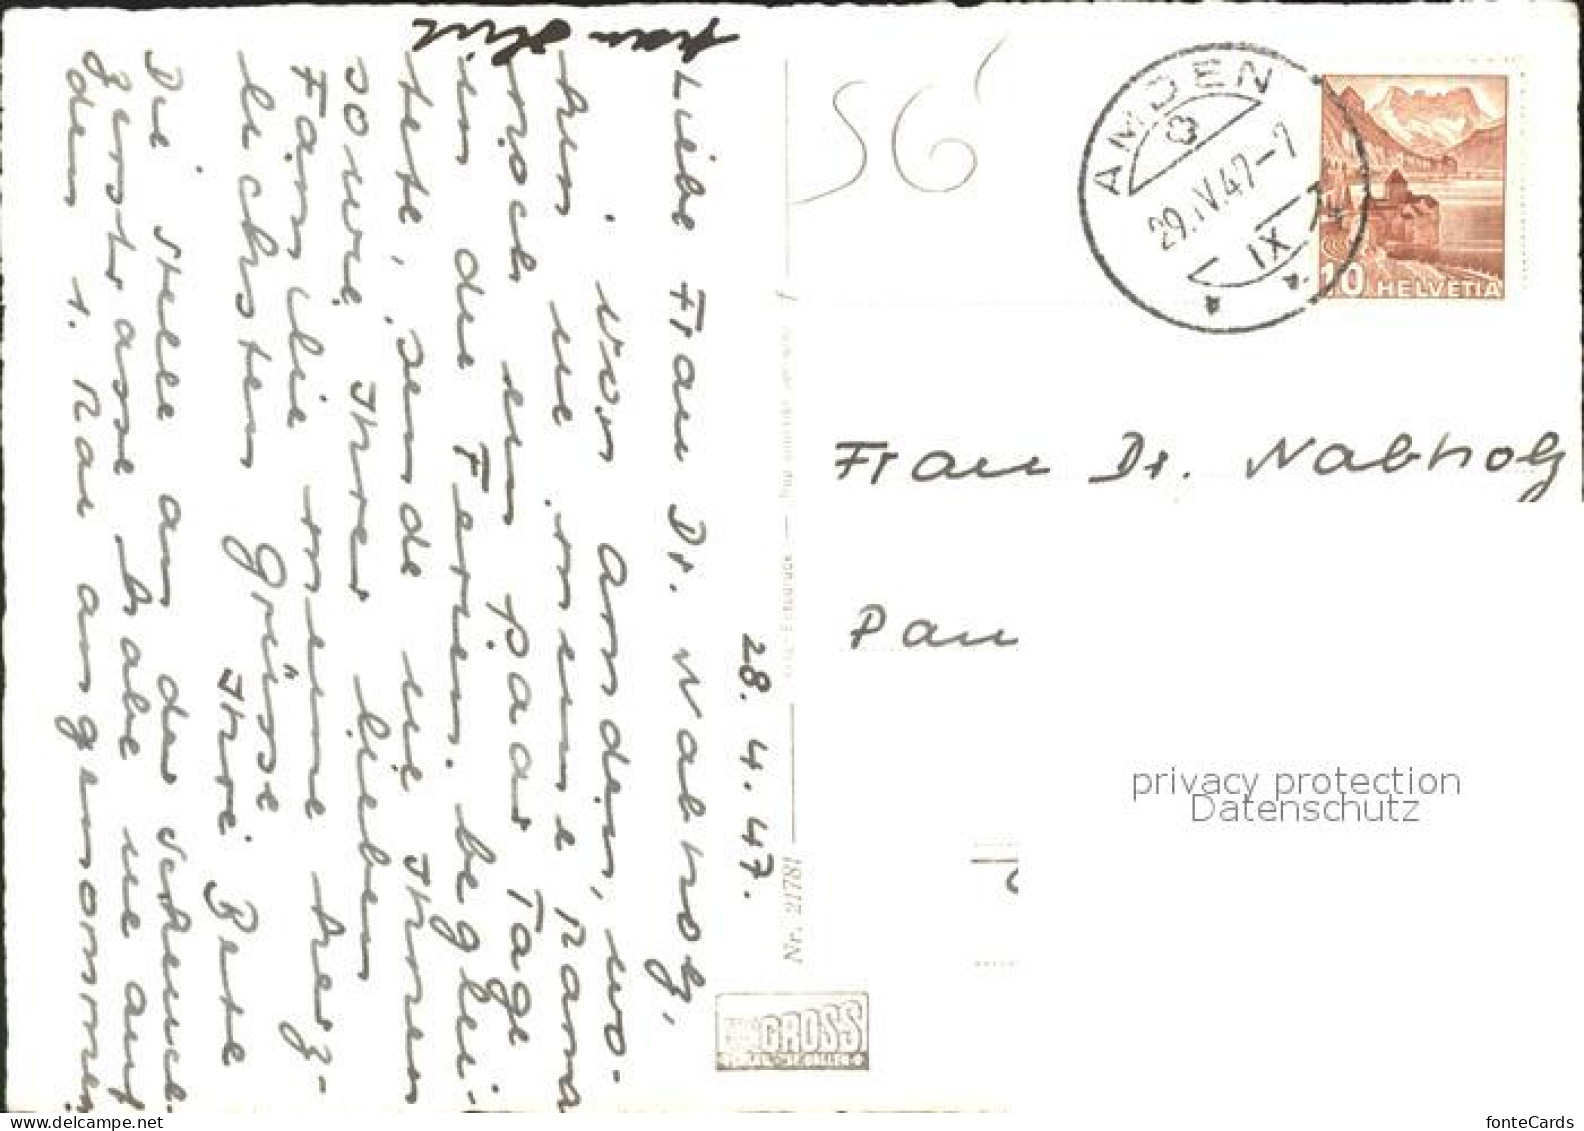 28. 4. 47.
Liebe Frau Dr. Nabholz,
Von Amden, wo-
hin ich meine Mama
noch ein paar Tage
in die Ferien beglei-
tete, sende ich Ihnen
sowie Ihrer lieben
Familie meine herz-
lichsten Grüsse
Ihre Bete
Die Stelle an der Scheuch-
zerstrasse habe ich auf
den 1. Mai angenommen
Nr. 21781
GROSS
ST. GALLEN
56
AMDEN
29.IV.47-7
IX
10 HELVETIA
Frau Dr. Nabholz
privacy protection
Datenschutz
www.delcampe.net
fonteCards